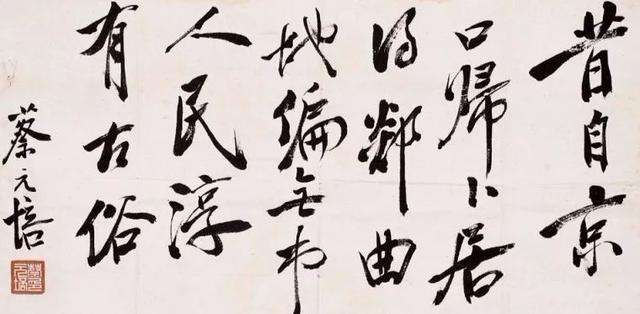 昔自京
口歸卜居
得鄰曲
地偏無市
人民淳
有古俗
蔡元培